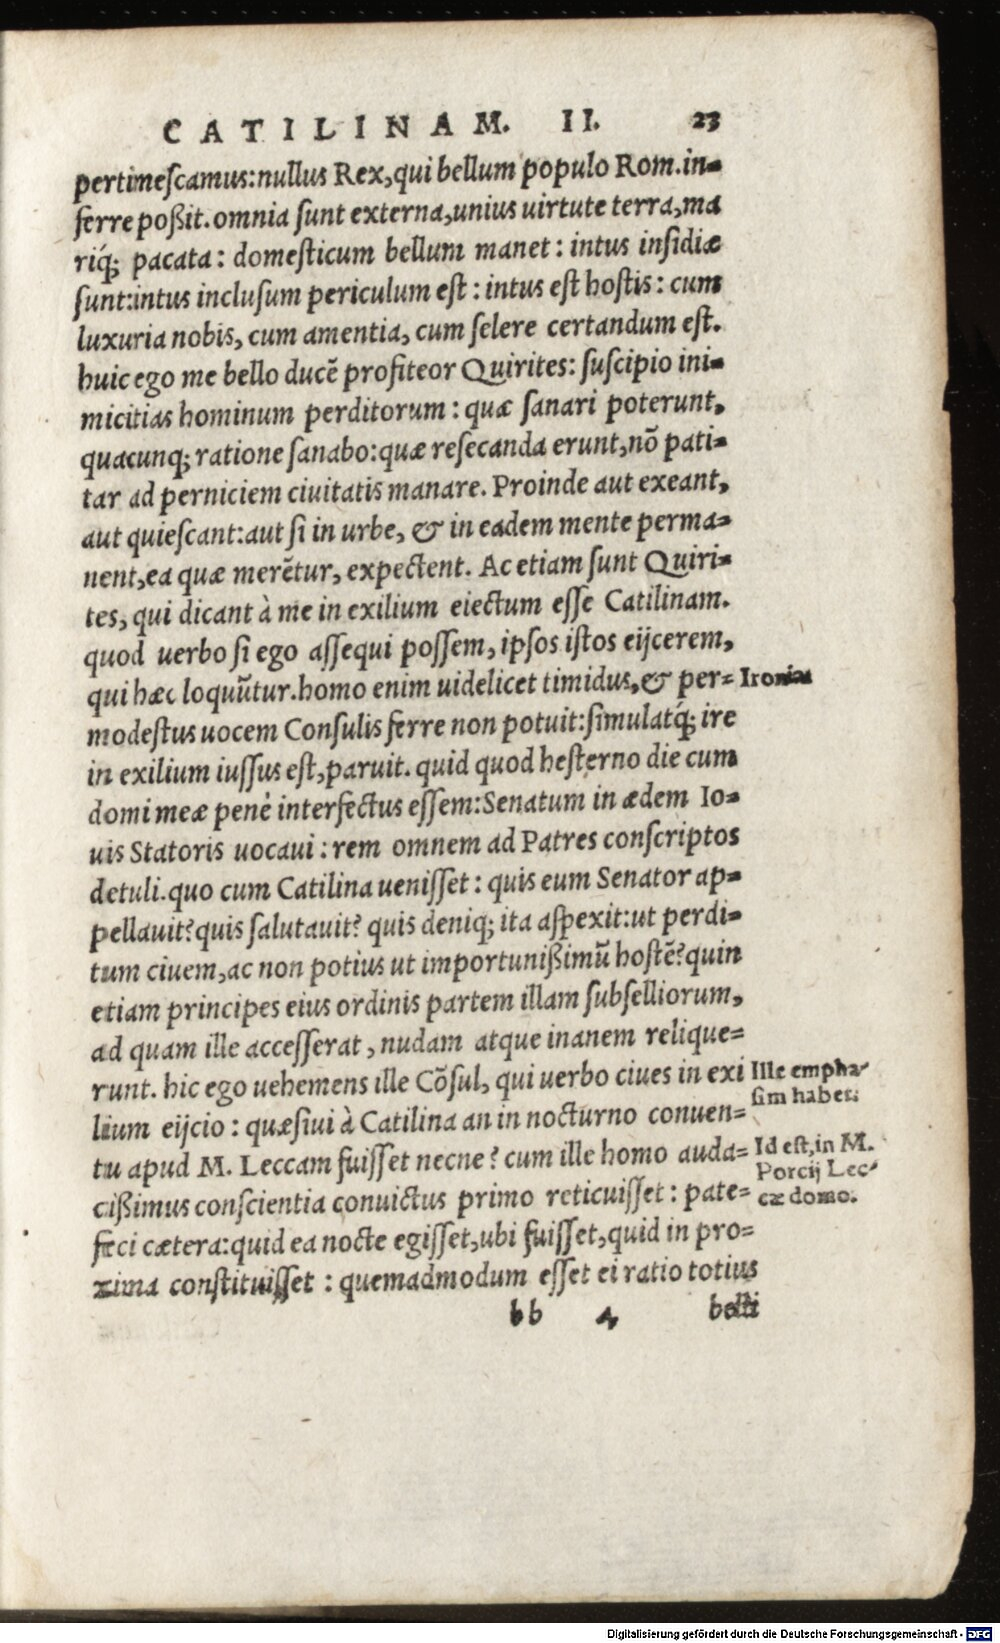 CATILINAM. II. 23
pertimeſcamus: nullus Rex, qui bellum populo Rom. in-
ferre poßit. omnia ſunt externa, unius uirtute terra, ma
riq́; pacata: domeſticum bellum manet: intus inſidiæ
ſunt: intus incluſum periculum eſt: intus eſt hoſtis: cum
luxuria nobis, cum amentia, cum ſelere certandum eſt.
huic ego me bello ducẽ profiteor Quirites: ſuſcipio ini-
micitias hominum perditorum: quæ ſanari poterunt,
quacunq; ratione ſanabo: quæ reſecanda erunt, nõ pati-
tar ad perniciem ciuitatis manare. Proinde aut exeant,
aut quieſcant: aut ſi in urbe, & in eadem mente perma-
nent, ea quæ merẽtur, expectent. Ac etiam ſunt Quiri-
tes, qui dicant à me in exilium eiectum eſſe Catilinam.
quod uerbo ſi ego aſſequi poſſem, ipſos iſtos eijcerem,
qui hæc loquũtur. homo enim uidelicet timidus, & per-
Ironia
modeſtus uocem Conſulis ferre non potuit: ſimulatq́; ire
in exilium iuſſus eſt, paruit. quid quod heſterno die cum
domi meæ penè interfectus eſſem: Senatum in ædem Io-
uis Statoris uocaui: rem omnem ad Patres conſcriptos
detuli. quo cum Catilina ueniſſet: quis eum Senator ap-
pellauit? quis ſalutauit? quis deniq; ita aſpexit: ut perdi-
tum ciuem, ac non potius ut importunißimũ hoſtẽ? quin
etiam principes eius ordinis partem illam ſubſelliorum,
ad quam ille acceſſerat, nudam atque inanem relique-
runt. hic ego uehemens ille Cõſul, qui uerbo ciues in exi
Ille empha-
ſim habet.
lium eijcio: quæſiui à Catilina an in nocturno conuen-
tu apud M. Leccam fuiſſet necne? cum ille homo auda-
Id eſt, in M.
Porcij Lec-
cæ domo.
cißimus conſcientia conuictus primo reticuiſſet: pate-
feci cætera: quid ea nocte egiſſet, ubi fuiſſet, quid in pro-
xima conſtituiſſet: quemadmodum eſſet ei ratio totius
bb 4 belli
Digitalisierung gefördert durch die Deutsche Forschungsgemeinschaft - DFG